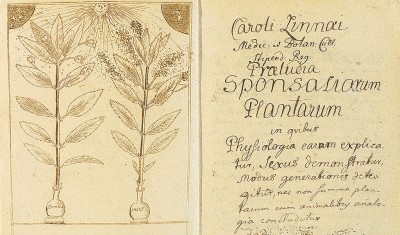 Caroli Linnæi
Medic: et Botan: Cult.
Stipend: Reg:
Præludia
Sponsaliorum
Plantarum
in quibus
Physiologia earum explica
tur, Sexus demonstratur,
modus generationis dete
gitur, nec non summa plan
tarum cum animalibus analo
gia concluditur